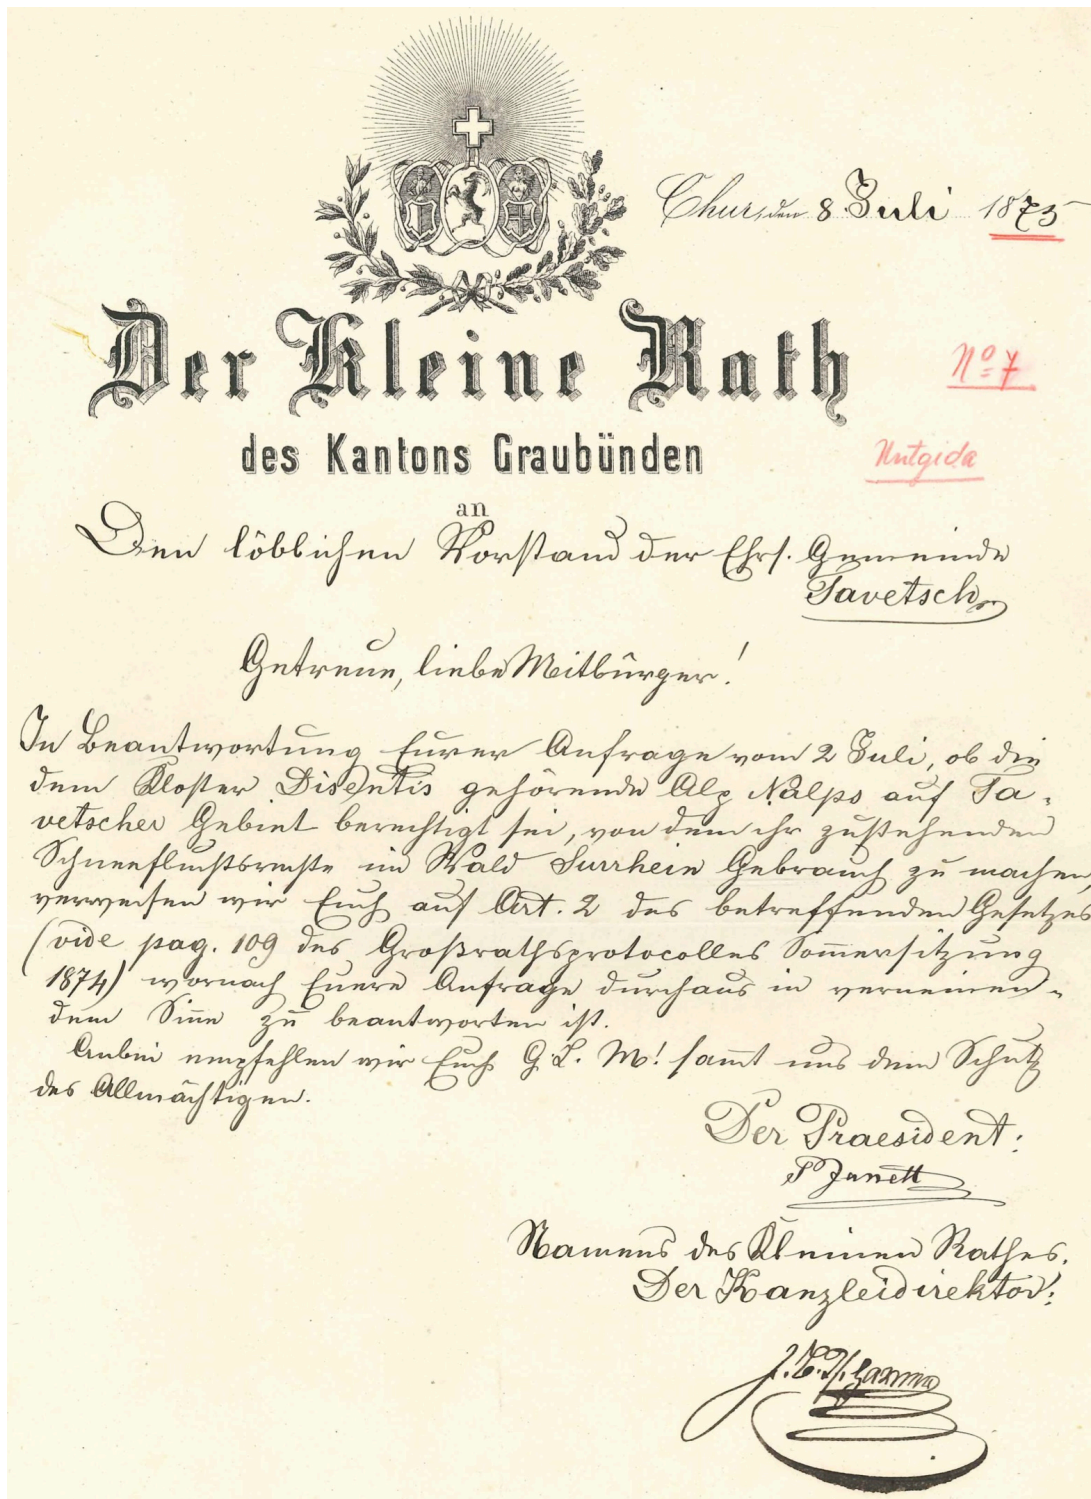 Chur, den 8 Juli 1875
Der Kleine Rath
No 7
des Kantons Graubünden
Nutgida
an
Den löblichen Vorstand der Ehrs. Gemeinde
Tavetsch
Getreue, liebe Mitbürger!
In Beantwortung Eurer Anfrage vom 2 Juli, ob die
dem Kloster Disentis gehörende Alp Nalps auf Ta-
vetscher Gebiet berechtigt sei, von dem ihr zustehenden
Schneefluchtsrechte im Wald Surrhein Gebrauch zu machen,
verweisen wir Euch auf Art. 2 des betreffenden Gesetzes
(vide pag. 109 des Großrathsprotocolles Som̄ersitzung
1874) wornach Euere Anfrage durchaus in verneinen-
dem Sin̄e zu beantworten ist.
Anbei empfehlen wir Euch G. L. M! sam̄t uns dem Schutz
des Allmächtigen.
Der Praesident:
P Janett
Namens des Kleinen Rathes.
Der Kanzleidirektor:
J. B. Tscharner